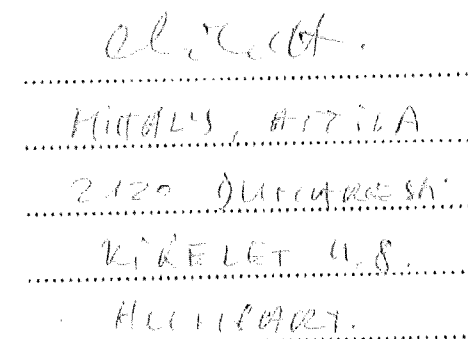 MIHÁLY, ATTILA
2120 DUNAKESZI
KIKELET U. 8.
HUNGARY.